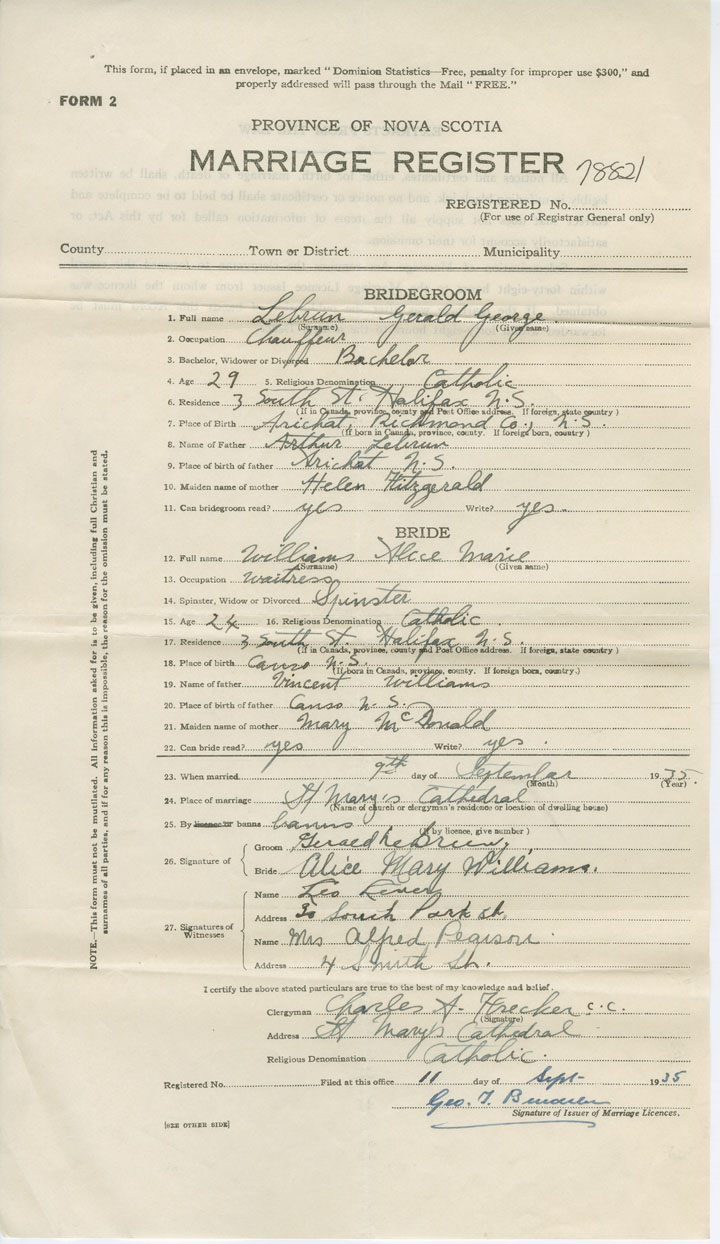 This form, if placed in an envelope, marked "Dominion Statistics—Free, penalty for improper use $300," and
properly addressed will pass through the Mail "FREE."
FORM 2
PROVINCE OF NOVA SCOTIA
MARRIAGE REGISTER 78821
REGISTERED No.
(For use of Registrar General only)
County Town or District Municipality
BRIDEGROOM
1. Full name Lebrun Gerald George
(Surname) (Given name)
2. Occupation Chauffeur
3. Bachelor, Widower or Divorced Bachelor
4. Age 29 5. Religious Denomination Catholic
6. Residence 3 South St. Halifax N.S.
(If in Canada, province, county and Post Office address. If foreign, state country)
7. Place of Birth Arichat, Richmond Co., N.S.
(If born in Canada, province, county. If foreign born, country)
8. Name of Father Arthur Lebrun
9. Place of birth of father Arichat N.S.
10. Maiden name of mother Helen Fitzgerald
11. Can bridegroom read? yes Write? yes
BRIDE
12. Full name Williams Alice Marie
(Surname) (Given name)
13. Occupation waitress
14. Spinster, Widow or Divorced Spinster
15. Age 24 16. Religious Denomination Catholic
17. Residence 3 South St. Halifax N.S.
(If in Canada, province, county and Post Office address. If foreign, state country)
18. Place of birth Canso N.S.
(If born in Canada, province, county. If foreign born, country.)
19. Name of father Vincent Williams
20. Place of birth of father Canso N.S.
21. Maiden name of mother Mary McDonald
22. Can bride read? yes Write? yes.
23. When married 9th day of September 1935.
(Month) (Year)
24. Place of marriage St Mary's Cathedral
(Name of church or clergyman's residence or location of dwelling house)
25. By licence or banns banns
(If by licence, give number)
26. Signature of
Groom Gerald LeBrun,
Bride Alice Mary Williams.
27. Signatures of Witnesses
Name Leo
Address South Park St.
Name Mrs Alfred Pearson
Address 4 Smith St.
I certify the above stated particulars are true to the best of my knowledge and belief.
Clergyman Charles A. Frecker c.c.
(Signature)
Address St Mary's Cathedral
Religious Denomination Catholic.
Registered No. Filed at this office 11 day of Sept- 1935
Geo. T.
Signature of Issuer of Marriage Licences.
[SEE OTHER SIDE]
NOTE.—This form must not be mutilated. All information asked for is to be given, including full Christian and
surnames of all parties, and if for any reason this is impossible, the reason for the omission must be stated.